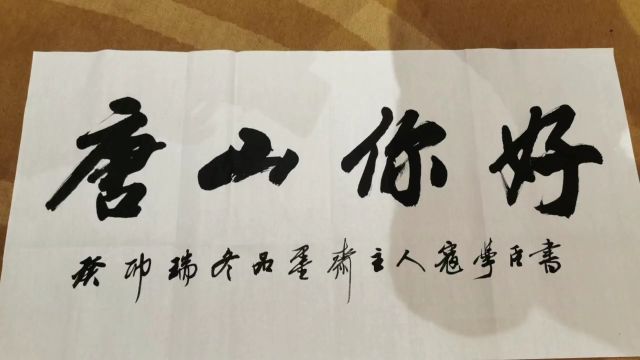 唐山你好
癸卯瑞冬品墨斋主人寇學臣書